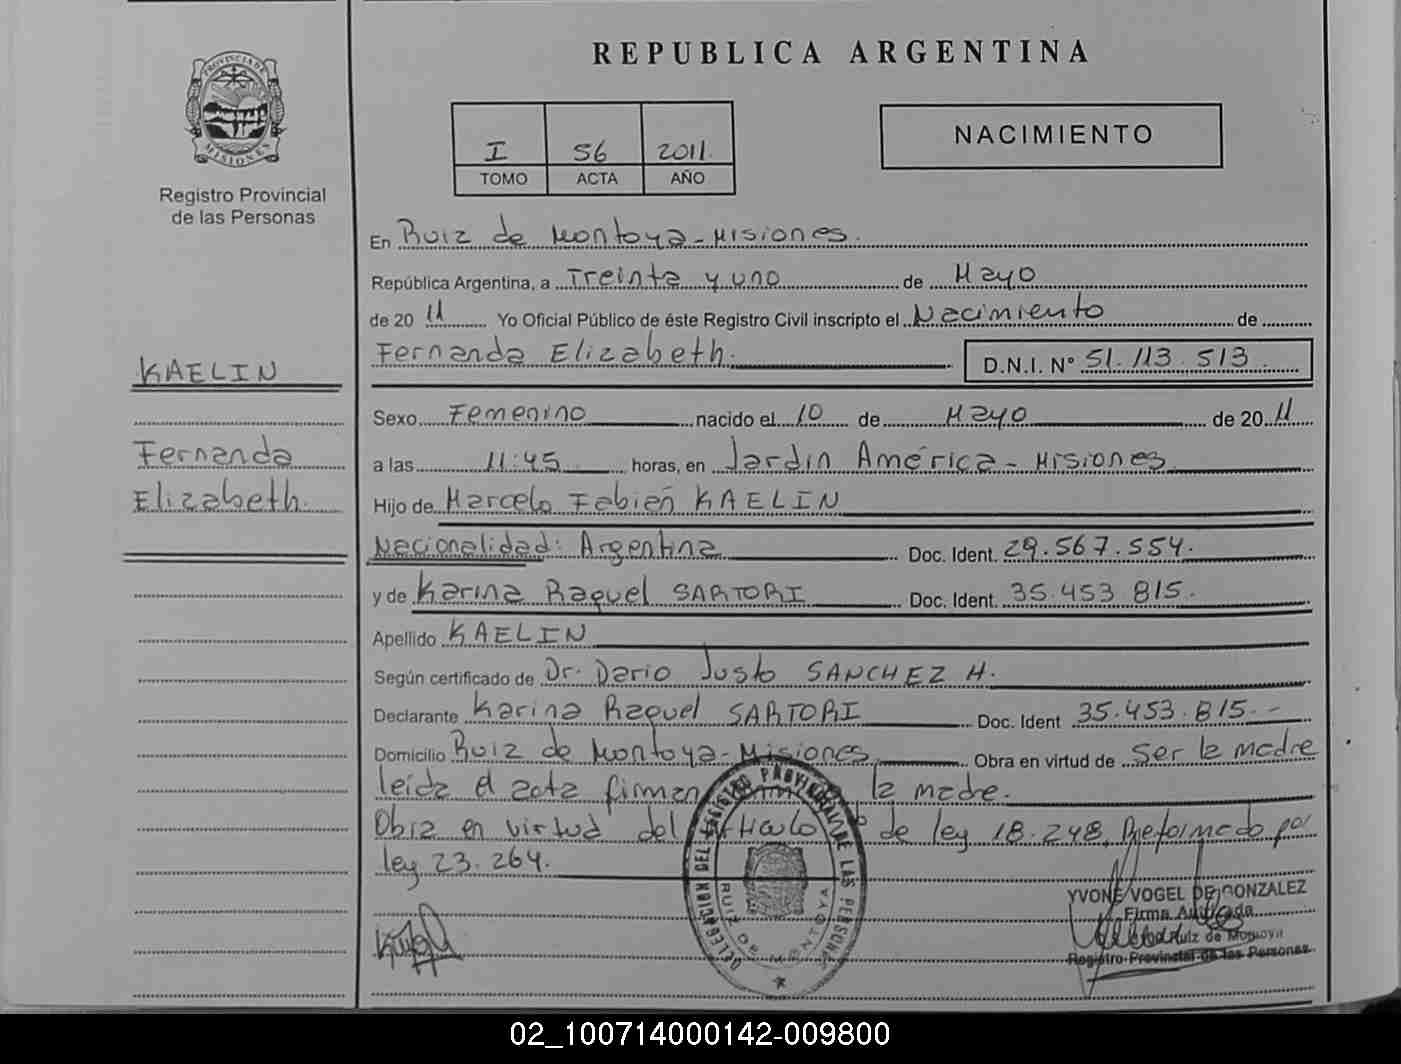 PROVINCIA DE
MISIONES
Registro Provincial
de las Personas
KAELIN
Fernanda
Elizabeth.
REPUBLICA ARGENTINA
I 56 2011.
TOMO ACTA AÑO
NACIMIENTO
En Ruiz de Montoya - Misiones.
República Argentina, a Treinta y uno de Mayo
de 20 11 Yo Oficial Público de éste Registro Civil inscripto el Nacimiento de
Fernanda Elizabeth. D.N.I. Nº 51.113.513
Sexo Femenino nacido el 10 de Mayo de 20 11
a las 11:45 horas, en Jardin América - Misiones
Hijo de Marcelo Fabián KAELIN
Nacionalidad: Argentina Doc. Ident. 29.567.554.
y de Karina Raquel SARTORI Doc. Ident. 35.453.815.
Apellido KAELIN
Según certificado de Dr. Dario Justo SANCHEZ H.
Declarante Karina Raquel SARTORI Doc. Ident 35.453.815.-
Domicilio Ruiz de Montoya - Misiones Obra en virtud de Ser la madre
leída el acta firman la madre.
Obra en virtud del Articulo de ley 18.248, Reformado por
ley 23.264.
DELEGACION DEL REGISTRO PROVINCIAL DE LAS PERSONAS
RUIZ DE MONTOYA
YVONE VOGEL DE GONZALEZ
Firma Autorizada
Ruiz de Montoya
Registro Provincial de las Personas
02_100714000142-009800